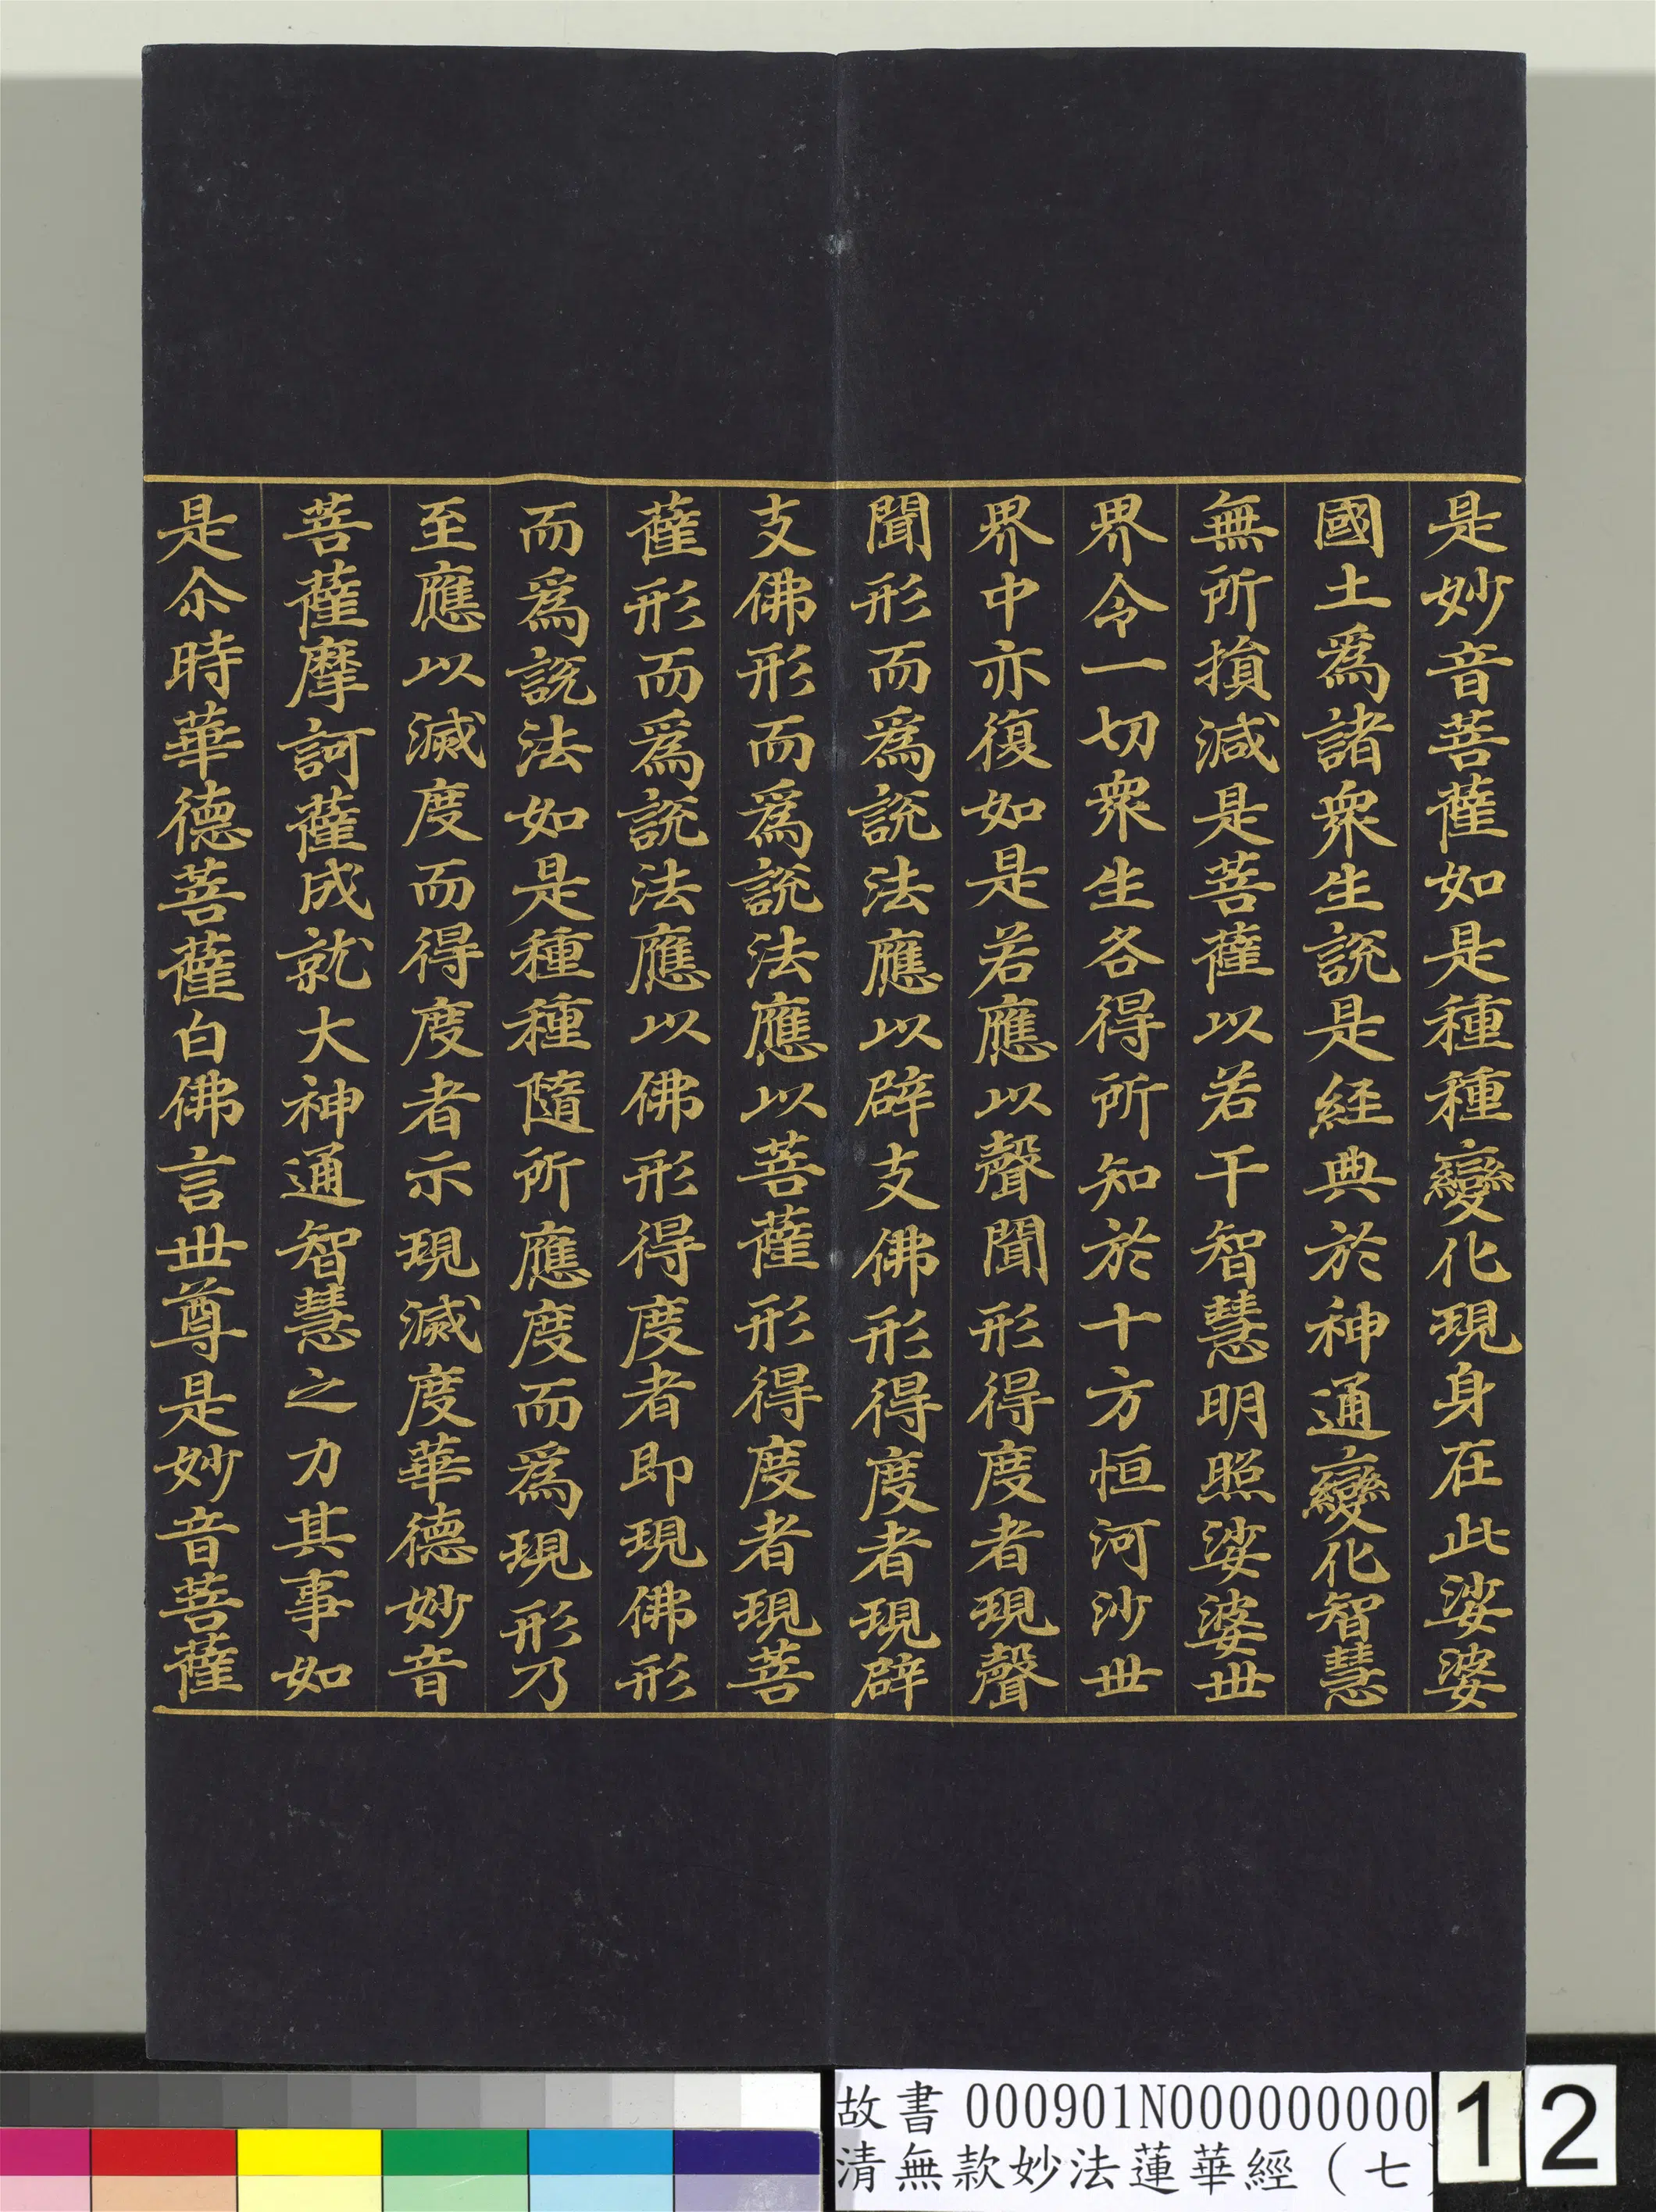 是妙音菩薩如是種種變化現身在此娑婆
國土爲諸衆生說是経典於神通變化智慧
無所損減是菩薩以若干智慧明照娑婆世
界令一切衆生各得所知於十方恒河沙世
界中亦復如是若應以聲聞形得度者現聲
聞形而爲說法應以辟支佛形得度者現辟
支佛形而爲說法應以菩薩形得度者現菩
薩形而爲說法應以佛形得度者即現佛形
而爲說法如是種種隨所應度而爲現形乃
至應以滅度而得度者示現滅度華德妙音
菩薩摩訶薩成就大神通智慧之力其事如
是尒時華德菩薩白佛言世尊是妙音菩薩
故書 000901N000000000
清無款妙法蓮華經（七
12